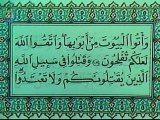 وَأْتُوا۟ ٱلْبُيُوتَ مِنْ أَبْوَٰبِهَا وَٱتَّقُوا۟ ٱللَّهَ
لَعَلَّكُمْ تُفْلِحُونَ وَقَٰتِلُوا۟ فِى سَبِيلِ ٱللَّهِ
ٱلَّذِينَ يُقَٰتِلُونَكُمْ وَلَا تَعْتَدُوٓا۟